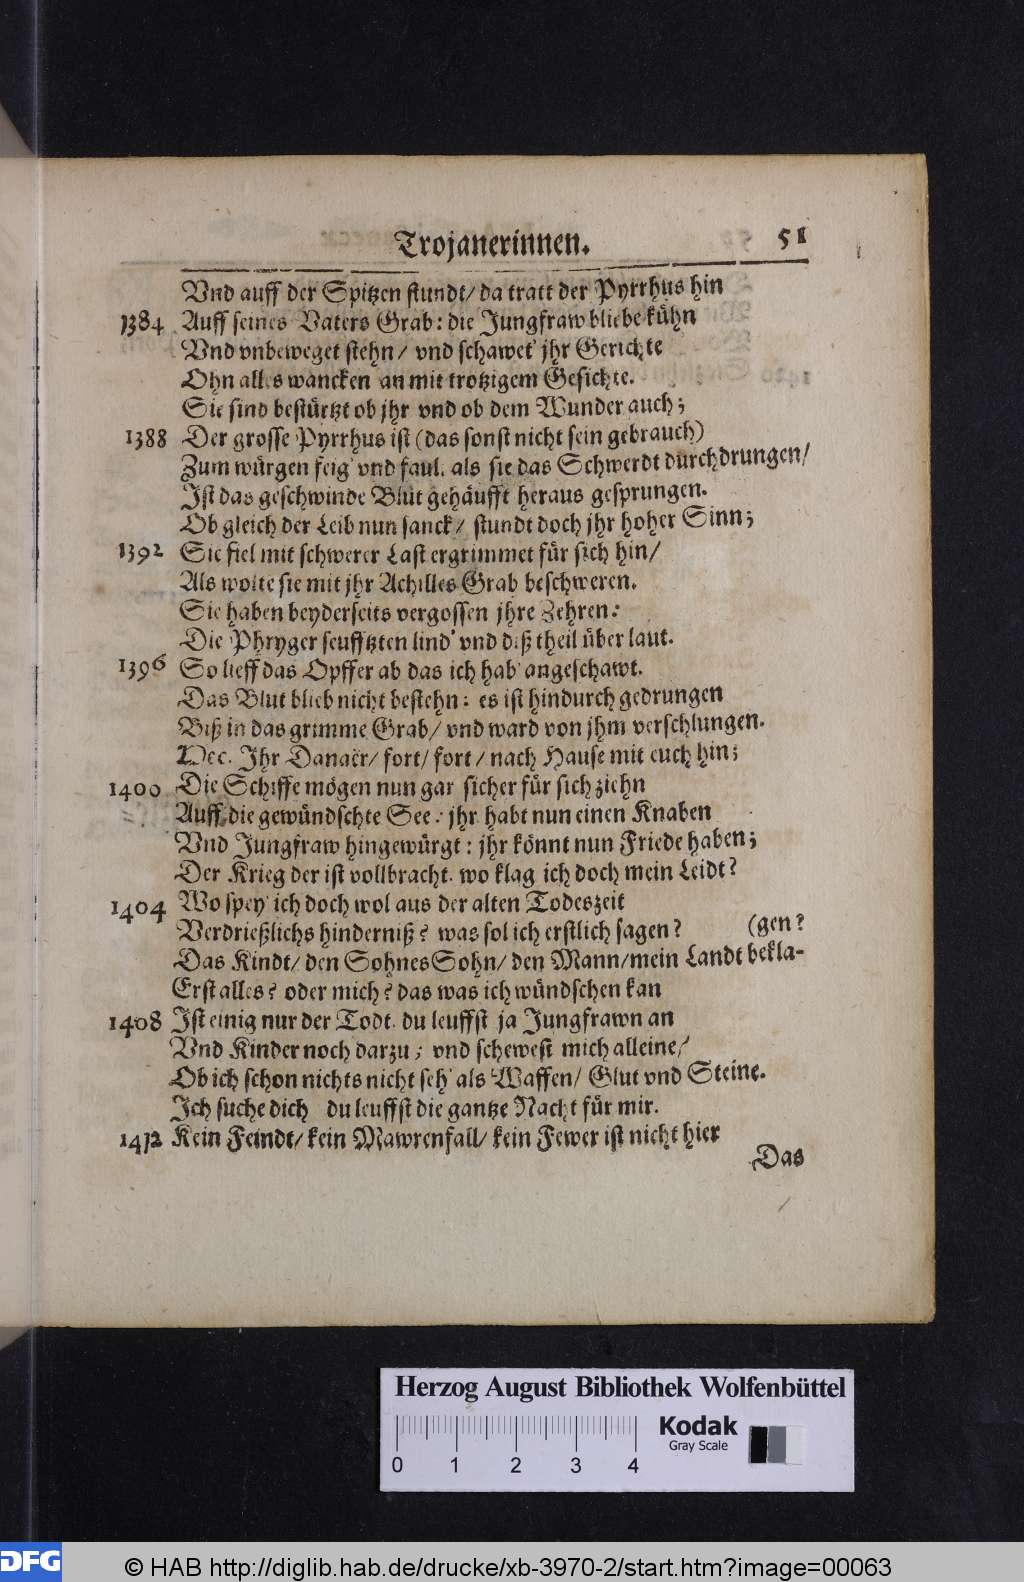 Trojanerinnen. 51
Vnd auff der Spitzen stundt/ da tratt der Pyrrhus hin
1384 Auff seines Vaters Grab: die Jungfraw bliebe kühn
Vnd vnbeweget stehn/ vnd schawet' jhr Gerichte
Ohn alles wancken an mit trotzigem Gesichte.
Sie sind bestürtzt ob jhr vnd ob dem Wunder auch;
1388 Der grosse Pyrrhus ist (das sonst nicht sein gebrauch)
Zum würgen feig' vnd faul. als sie das Schwerdt durchdrungen/
Ist das geschwinde Blut gehäufft heraus gesprungen.
Ob gleich der Leib nun sanck/ stundt doch jhr hoher Sinn;
1392 Sie fiel mit schwerer Last ergrimmet für sich hin/
Als wolte sie mit jhr Achilles Grab beschweren.
Sie haben beyderseits vergossen jhre Zehren:
Die Phryger seufftzten lind' vnd diß theil über laut.
1396 So lieff das Opffer ab das ich hab' angeschawt.
Das Blut blieb nicht bestehn: es ist hindurch gedrungen
Biß in das grimme Grab/ vnd ward von jhm verschlungen.
Hec. Ihr Danaer/ fort/ fort/ nach Hause mit euch hin;
1400 Die Schiffe mögen nun gar sicher für sich ziehn
Auff die gewündschte See: jhr habt nun einen Knaben
Vnd Jungfraw hingewürgt: jhr könnt nun Friede haben;
Der Krieg der ist vollbracht. wo klag ich doch mein Leidt?
1404 Wo spey' ich doch wol aus der alten Todeszeit
Verdrießlichs hinderniß? was sol ich erstlich sagen? (gen?
Das Kindt/ den Sohnes Sohn/ den Mann/ mein Landt bekla-
Erst alles? oder mich? das was ich wündschen kan
1408 Ist einig nur der Todt. du leuffst ja Jungfrawn an
Vnd Kinder noch darzu; vnd schewest mich alleine/
Ob ich schon nichts nicht seh' als Waffen/ Glut vnd Steine.
Ich suche dich du leuffst die gantze Nacht für mir.
1412 Kein Feindt/ kein Mawrenfall/ kein Fewer ist nicht hier
Das
Herzog August Bibliothek Wolfenbüttel
Kodak
Gray Scale
0 1 2 3 4
DFG
© HAB http://diglib.hab.de/drucke/xb-3970-2/start.htm?image=00063